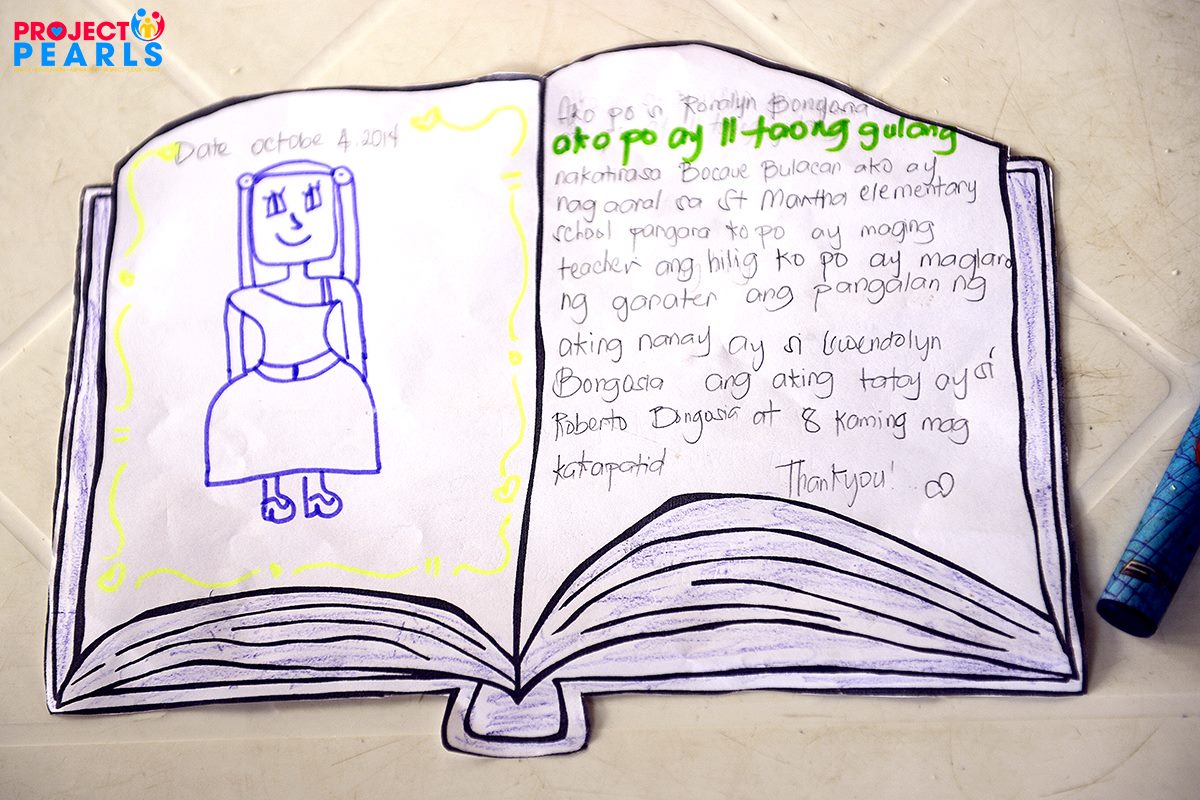 PROJECT
PEARLS
Date octobe 4.2014
Ako po si Ronalyn Bongasia
ako po ay 11 taong gulang
nakatirasa Bocaue Bulacan ako ay
nag aaral sa St Martha elementary
school pangara ko po ay maging
teacher ang hilig ko po ay maglaro
ng garater ang pangalan ng
aking nanay ay si Gwendolyn
Bongasia ang aking tatay ay si
Roberto Bongasia at 8 kaming mag
katapatid
Thankyou!